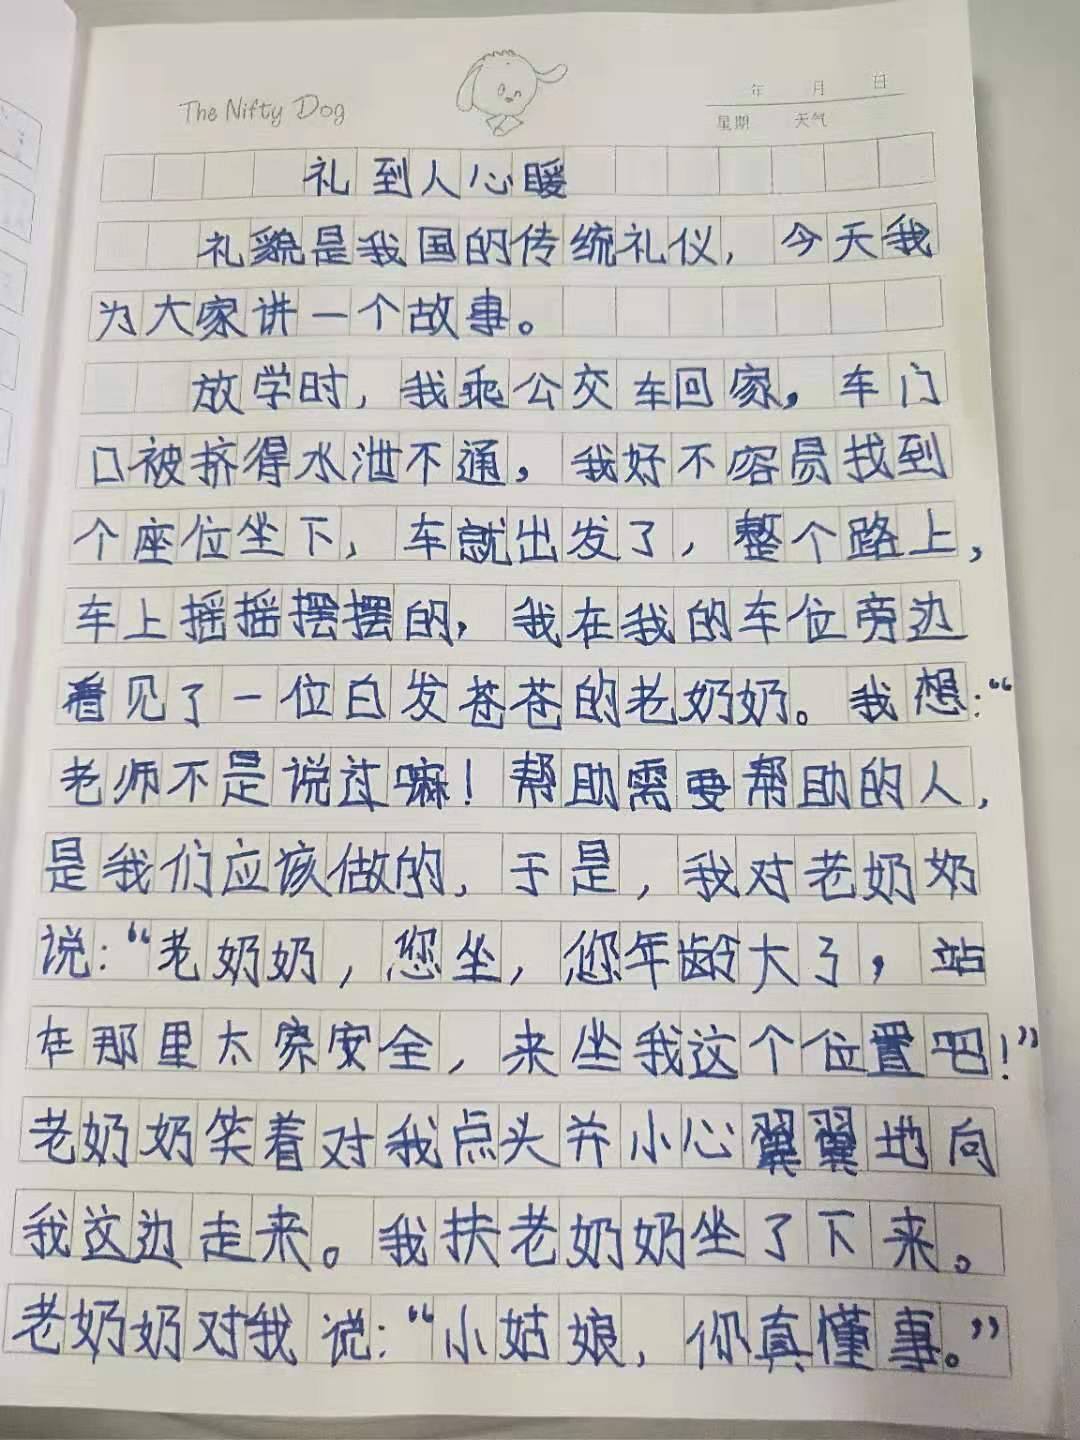 The Nifty Dog
年 月 日
星期 天气
礼到人心暖
礼貌是我国的传统礼仪，今天我
为大家讲一个故事。
放学时，我乘公交车回家，车门
口被挤得水泄不通，我好不容员找到
个座位坐下，车就出发了，整个路上，
车上摇摇摆摆的，我在我的车位旁边
看见了一位白发苍苍的老奶奶。我想：“
老师不是说过嘛！帮助需要帮助的人，
是我们应该做的，于是，我对老奶奶
说：“老奶奶，您坐，您年龄大了，站
在那里太安全，来坐我这个位置吧！”
老奶奶笑着对我点头并小心翼翼地向
我这边走来。我扶老奶奶坐了下来。
老奶奶对我说：“小姑娘，你真懂事。”